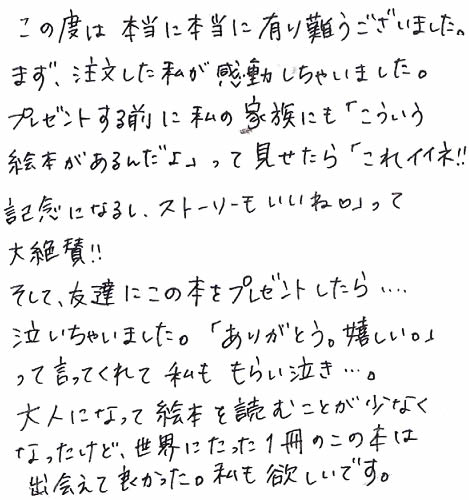 この度は本当に本当に有り難うございました。
まず、注文した私が感動しちゃいました。
プレゼントする前に私の家族にも「こういう
絵本があるんだよ」って見せたら「これイイネ!!
記念になるし、ストーリーもいいね○」って
大絶賛!!
そして、友達にこの本をプレゼントしたら‥‥
泣いちゃいました。「ありがとう。嬉しい。」
って言ってくれて私ももらい泣き…。
大人になって絵本を読むことが少なく
なったけど、世界にたった1冊のこの本は
出会えて良かった。私も欲しいです。